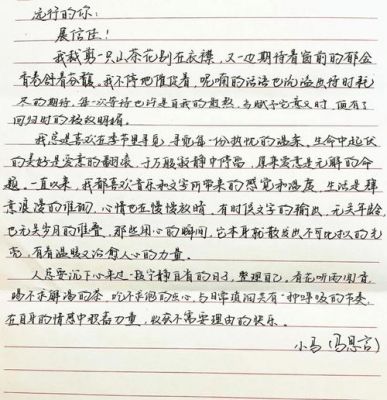 流行的你:
展信佳!
我裁剪一只山茶花别在衣襟,又一边期待着窗前的郁金
香卷舒着芬馥。我不停地催促着,呢喃的话语也沦溢出待时耗
尽的期待,每一次等待也许是自我的煎熬,当赋予它意义时,便有了
回归时的枝杈明晴。
我总是喜欢在季节里寻觅,寻觅每一份热忱的温柔。生命中起伏
的美好是爱意的翻滚,于万般寂静中停留,原来爱意是无解的命
题。一直以来,我都喜欢音乐和文字所带来的感觉和温度,生活是肆
意浪漫的准确,心情也在慢慢放晴,有时候文字的输出,无关年龄
也无关岁月的堆叠,那些用心的瞬间,它本身就散发出不可比拟的光
亮,有着温暖又治愈人心的力量。
人总要沉下心来过一段宁静自省的日子,整理自己,看花听雨闻香,
喝不求解渴的茶,吃不求饱的点心,与日常琐闻共有一种呼吸的节奏,
在自身的情感中积蓄力量,收获不需要理由的快乐。
小马(冯思言)